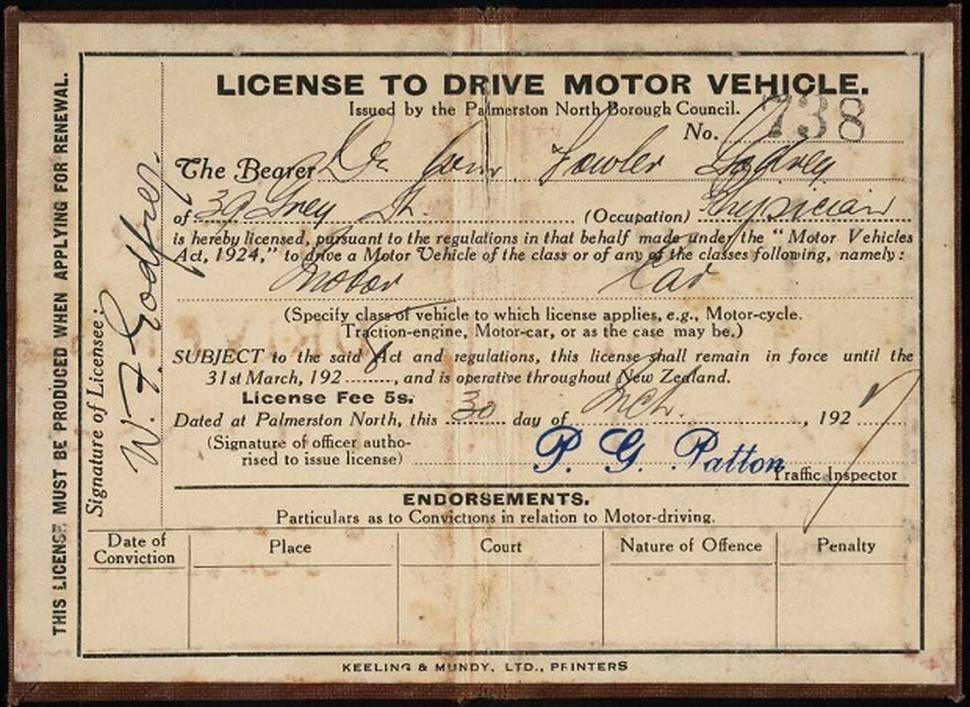 LICENSE TO DRIVE MOTOR VEHICLE.
Issued by the Palmerston North Borough Council.
No. 738
The Bearer Dr Fowler Godfrey
of 39 Grey St. (Occupation) Physician
is hereby licensed, pursuant to the regulations in that behalf made under the "Motor Vehicles
Act, 1924," to drive a Motor Vehicle of the class or of any of the classes following, namely:
Motor Car
(Specify class of vehicle to which license applies, e.g., Motor-cycle.
Traction-engine, Motor-car, or as the case may be.)
SUBJECT to the said Act and regulations, this license shall remain in force until the
31st March, 1928, and is operative throughout New Zealand.
License Fee 5s.
Dated at Palmerston North, this 30 day of Mch. , 192
(Signature of officer autho-
rised to issue license) P. G. Patton
Traffic Inspector
ENDORSEMENTS.
Particulars as to Convictions in relation to Motor-driving.
Date of Conviction Place Court Nature of Offence Penalty
KEELING & MUNDY, LTD., PRINTERS
THIS LICENSE MUST BE PRODUCED WHEN APPLYING FOR RENEWAL.
Signature of Licensee: W. F. Godfrey.